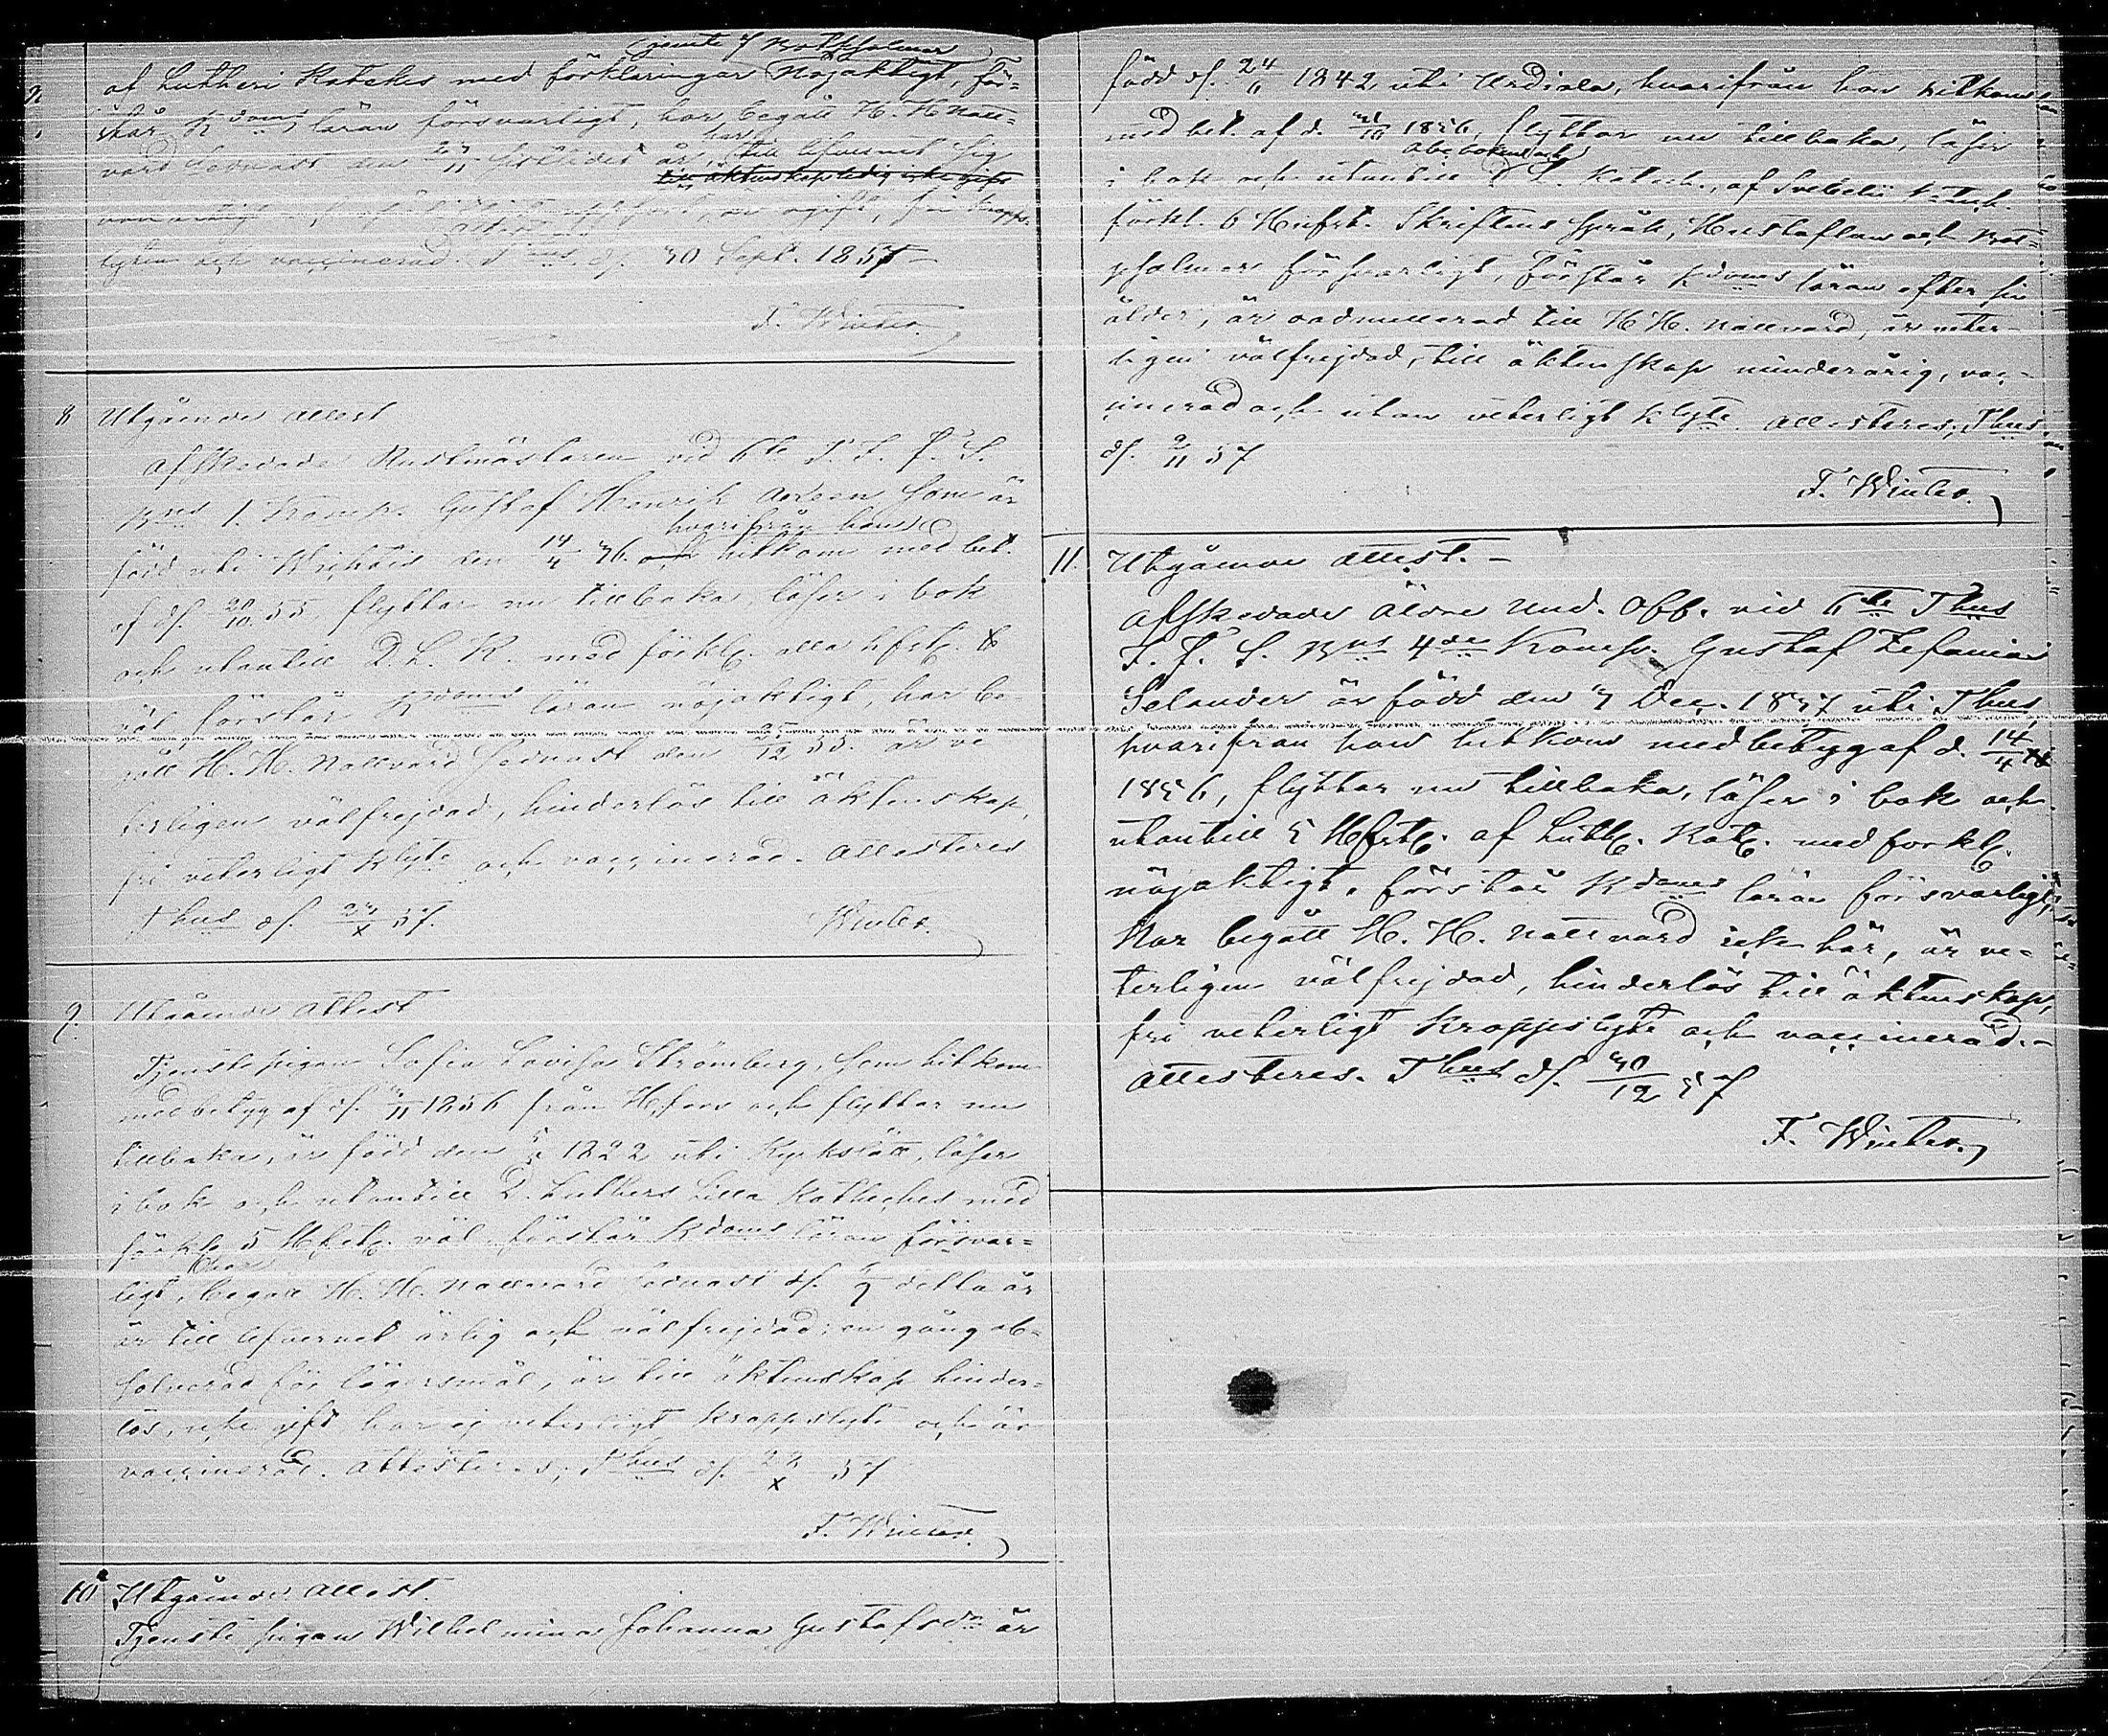 jemte 7 Botpsalmer
af Lutheri Katekes med förklaringar Nöjaktigt, för-
står Kdoms läran försvarligt, har begått H. H. Natt-
vard sednast den
till äktenskap ledig icke gift
ogift, fri kropps-
lyten och vaccinerad. Thus df. 30 Sept. 1857
F. Winter
8 Utgående Attest
Afskedade Rustmästaren vid 6te T. F. F. S.
Bns 1. Komp. Gustaf Henrik Andeen som är
hvarifrån han
född uti Wichtis den 14/4 36. och hitkom med bet.
af df. 20/10 55, flyttar nu tillbaka, läser i bok
och utantill D. L. K. med förkl. alla hfst.
väl, förstår Kdoms läran nöjaktigt, har be-
gått H. H. Nattvard sednast den 25/12 55. är ve-
terligen välfrejdad, hinderlös till äktenskap,
fri veterligt Klyte och vaccinerad. Attesteres
Thus df. 23/X 57.
Winter.
9. Utgående Attest
Tjenstepigan Sofia Lovisa Strömberg, som hitkom
med betyg af df. 3/11 1856 från H.fors och flyttar nu
tillbaka, är född den 1822 uti Kyrkslätt, läser
i bok och utantill D. Luthers Lilla Katheches med
förkl. 5 Hfst. väl, förstår Kdoms läran försvar-
har
ligt, begått H. H. Nattvard sednast df. detta år
är till lefvernet ärlig och välfrejdad; en gång ab-
solverad för lägersmål, är till äktenskap hinder-
lös, icke gift, har ej veterligt kroppslyte och är
vaccinerad. Attesteres, Thus df. 23/X 57
F. Winter.
10 Utgående Attest.
Tjenste pigan Wilhelmina Johanna Gustafsdr är
född df. 24/6 1842 uti Urdiala, hvarifrån hon hitkom
med bet. af d. 31/10 1856, flyttar nu tillbaka, läser
Abc boken och
i bok och utantill D L. Katech., af Svebelii Katech.
förkl. 6 Hufst. Skriftens språk, Hustaflan och Bot-
psalmer försvarligt, förstår Kdoms läran efter sin
ålder, är oadmitterad till H H. Nattvard, är veter-
ligen välfrejdad, till äktenskap minderårig, vac-
cinerad och utan veterligt Klyte. Attesteres, Thus
df. 9/11 57
F. Winter.
11. Utgående Attest.-
Afskedade äldre Und. Off. vid 6te Thus
F. F. S. Bns 4de Komp. Gustaf Zefanias
Selander är född den 3 Dec. 1837 uti Thus,
hvarifrån han hitkom med betyg af d. 14/4
1856, flyttar nu tillbaka, läser i bok och
utantill 5 Hfst. af Luth. Kat. med forkl.
nöjaktigt, förstår Kdoms läran försvarligt,
Har begått H. H. nattvard icke här, är ve-
terligen välfrejdad, hinderlös till äktenskap,
fri veterligt Kroppslyte och vaccinerad.-
Attesteres. Thus df. 30/12 57
F. Winter.